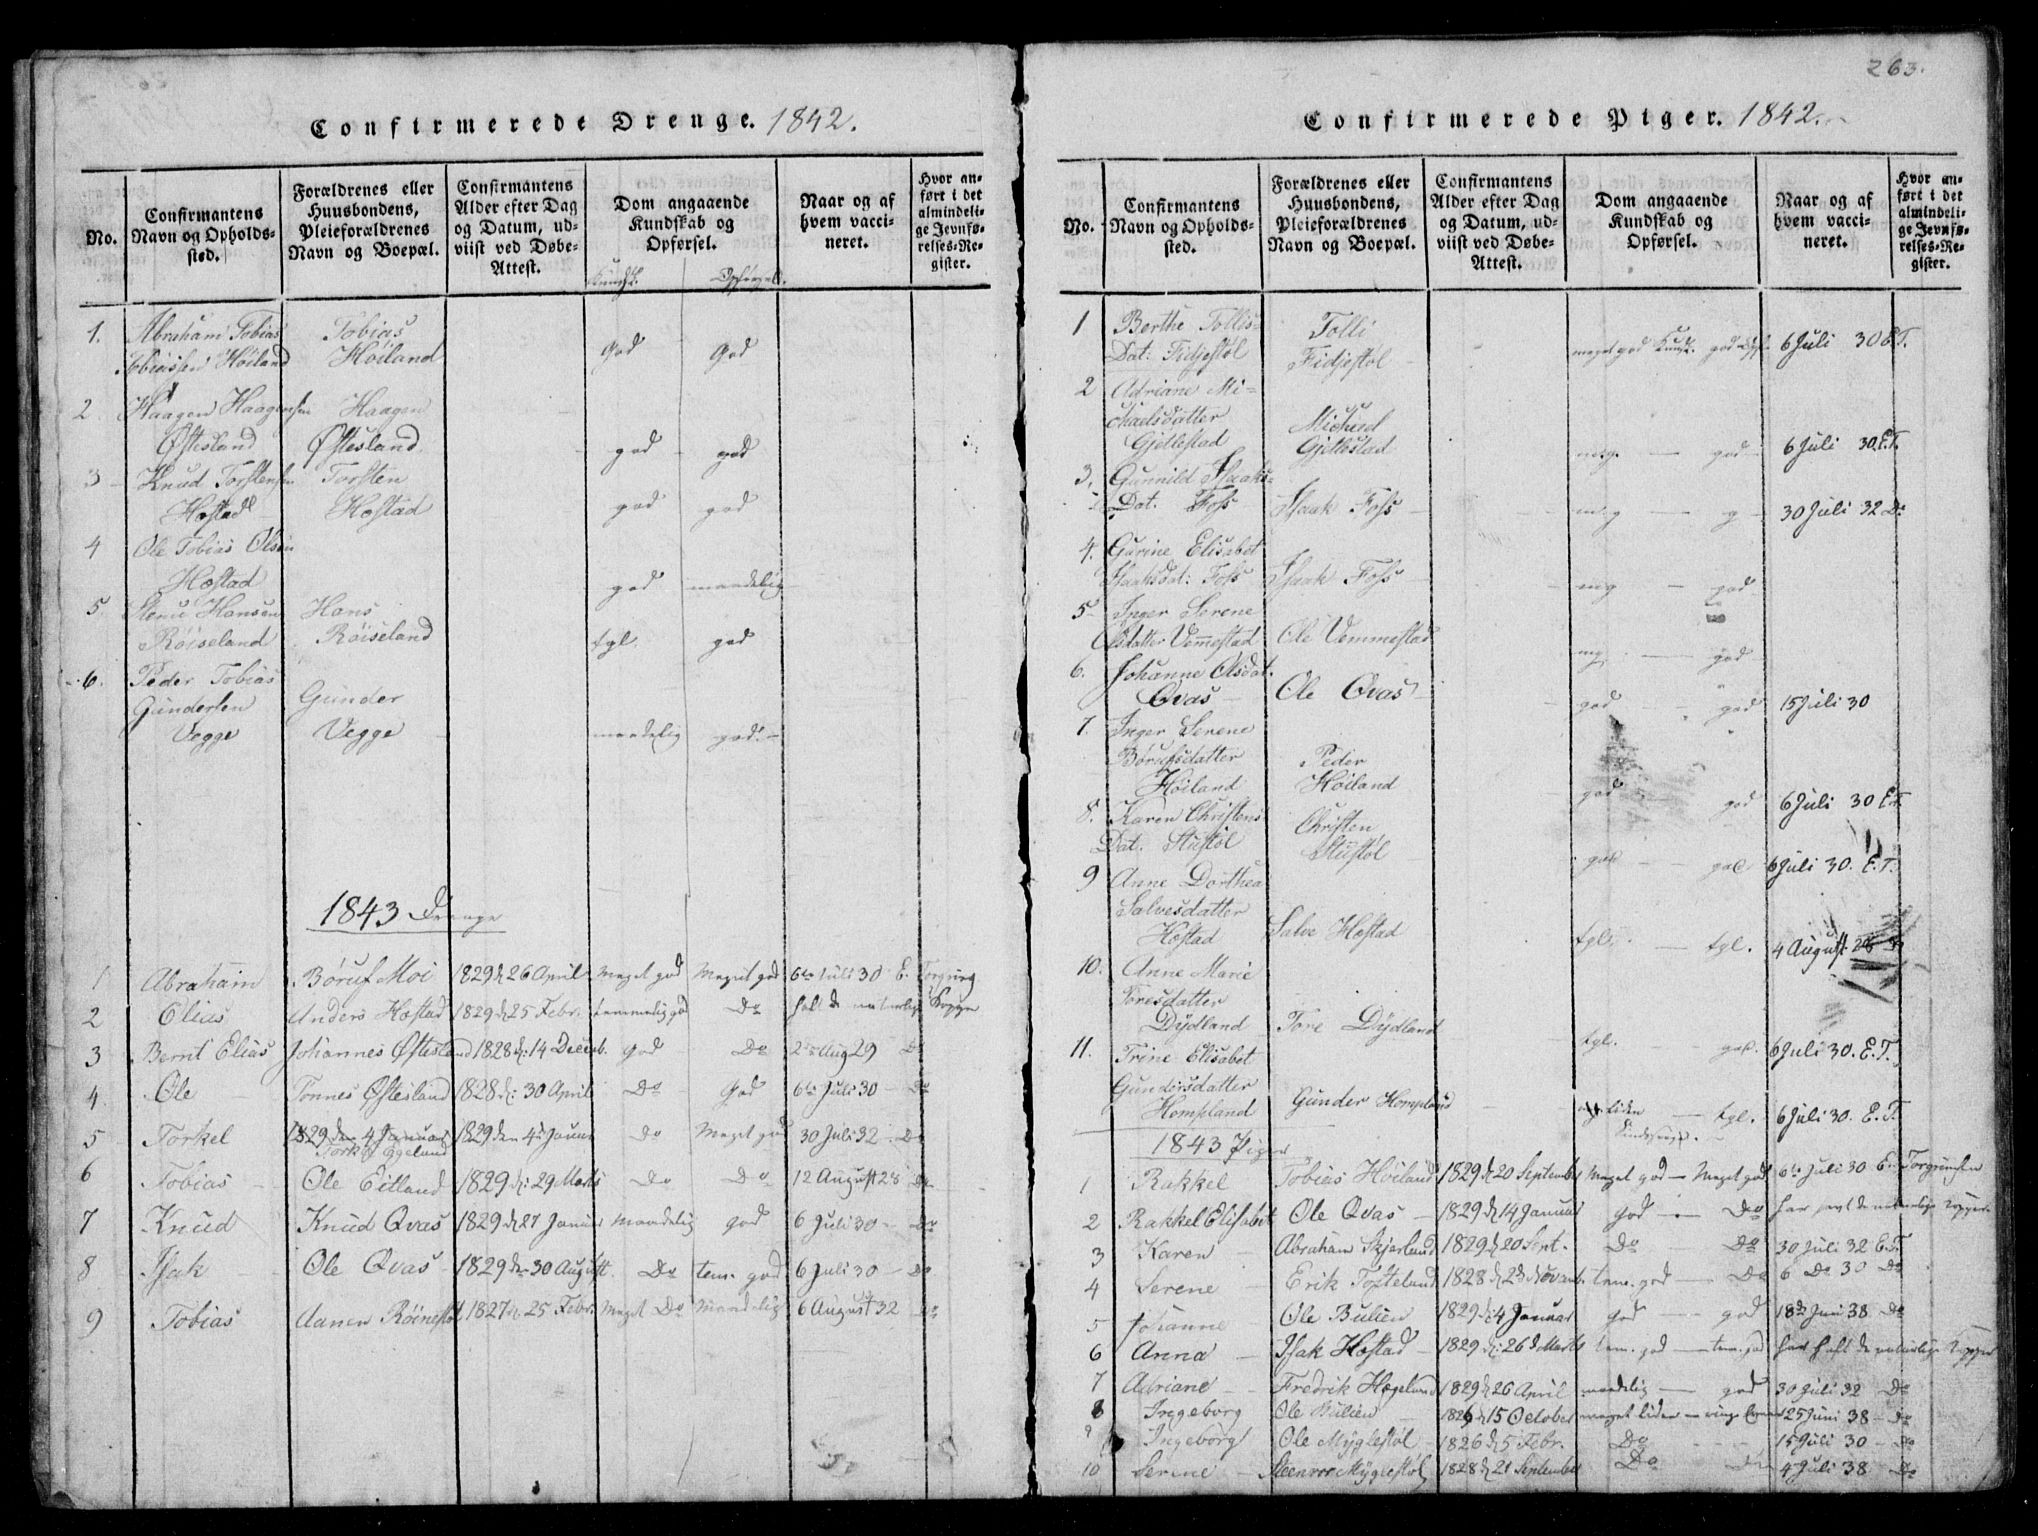 Confirmerede Drenge. 1842.
No.
Confirmantens Navn og Opholds-sted.
Forældrenes eller Huusbondens, Pleieforældrenes Navn og Boepæl.
Confirmantens Alder efter Dag og Datum, ud-viist ved Døbe-Attest.
Dom angaaende Kundskab og Opførsel.
Naar og af hvem vacci-neret.
Hvor an-ført i det almindeli-ge Jevnfø-relses-Re-gister.
Kundsk. Opførsel.
1. Abraham Tobias Tobias
Tobiassen Höiland Höiland God God
2. Haagen Haagensen Haagen
Østesland Østesland. god god
3 Knud Torstensen Torsten
Høstad Høstad god god
4 Ole Tobias Olsen
Høstad god maadelig
5 Stenie Hansen Hans
Röiseland Röiseland tgl. god
6. Peder Tobias
Gundersen Gunder
Vegge Vegge maadelig god.
1843 Drenge
1 Abraham Böruf Moi 1829 d 26 April Meget god Meget god 6te Juli 30 E. Torgrims
2 Elias Anders Høstad 1829 d 25 Febr. temmelig god Do haft de naturlige Kopper
3 Bernt Elias Johannes Østesland 1828 d: 14 Decemb. god Do 2den Aug 29 Do
4 Ole Tønnes Østesland 1828 d: 30 April Do God 6te Juli 30 Do
5 Torkel 1829 den 4 Januar 1829 den 4de Januar Do Meget god 30 Juli 32 Do
Torkel Egeland
6 Tobias Ole Eitland 1829 d: 29 Marts Do Do 12 August 28 Do
7 Knud Knud Qvas 1829 d 27 Januar Maadelig god 6 Juli 30 Do
8 Isak Ole Qvas 1829 den 30 August. Do tem. god 6 Juli 30 Do
9 Tobias Aanen Röinestöl 1827 d. 25 Febr. Meget Do Maadelig 6 August 32 Do
263.
Confirmerede Piger. 1842.
No.
Confirmantens Navn og Opholds-sted.
Forældrenes eller Huusbondens, Pleieforældrenes Navn og Boepæl.
Confirmantens Alder efter Dag og Datum, ud-viist ved Døbe-Attest.
Dom angaaende Kundskab og Opførsel.
Naar og af hvem vacci-neret.
Hvor an-ført i det almindeli-ge Jevnfø-relses-Re-gister.
1 Berthe Tollis- Tolli
Dat: Fidjestöl Fidjestöl meget god Kundsk. god Opf. 6 Juli 30 E.T.
2 Adriane Mi-
chaelsdatter Michael
Gjetlestad Gjetlestad meg. god 6 Juli 30 E.T.
3. Gunnild Isaaks-
Dat. Foss Isaak Foss m.g g 30 Juli 32 Do
4. Gurine Elisabet
Isaaksdat: Foss Isaak Foss mg god
5 Inger Serene
Olsdatter Vemmestad Ole Vemmestad mg god
6. Johanne Olsdat.
Qvas Ole Qvas god god 15 Juli 30
7. Inger Serene
Börufsdatter Peder
Höiland Höiland god god 6 Juli 30 E.T.
8. Karen Christens Christen
Dat. Stustöl Stustöl god god 6 Juli 30. E.T.
9 Anne Dorthea
Salvesdatter
Høstad Salve Høstad tgl. tgl. 4 August 28
10. Anne Marie
Toresdatter
Dydland Tore Dydland tgl. god. 6 Juli 30. E.T.
11. Trine Elisabet
Gundersdatter
Hompland Gunder Hompland liden tgl. 6 Juli 30. E.T.
1843 Piger
1 Rakkel Tobias Höiland 1829 d 20 September Meget god Meget god 6te Juli 30 E. Torgrimsen
2 Rakkel Elisabet Ole Qvas 1829 d 14 Januar god Do har havt de naturlige Kopper
3 Karen Abraham Skjerland 1829 d 20 Sept. Do Do 30 Juli 32 E.T.
4 Serene Erik Tofteland 1828 d 23 Novemb. tem. god Do 6 Do 30 Do
5 Johanne Ole Bulien 1829 d: 4 Januar god god 18de Juni 38 Do
6 Anna Isak Høstad 1829 d: 26 d Marts tem. god tem. god har haft de naturlige Kopper
7 Adriane Fredrik Hægeland 1829 d 26 April maadelig god 30 Juli 32 Do
8 Ingeborg Ole Bulien 1826 d 15 October meget liden 25 Juni 38 Do
9 Ingeborg Ole Myglestöl 1826 d 5 Febr. Do 15 Juli 30 Do
10 Serine Steenvor Myglestöl 1828 d 21 September Do Do 4 Juli 38 Do